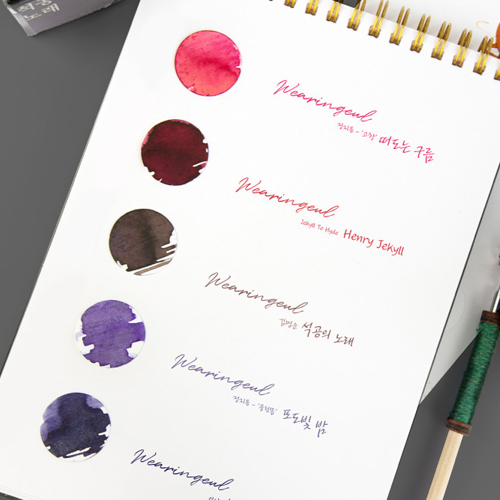 노래
Wearingeul
정지용 - '고향' 떠도는 구름
Wearingeul
Jekyll To Hyde Henry Jekyll
Wearingeul
석공의 노래
Wearingeul
정지용 - 포도빛 밤
Wearingeul